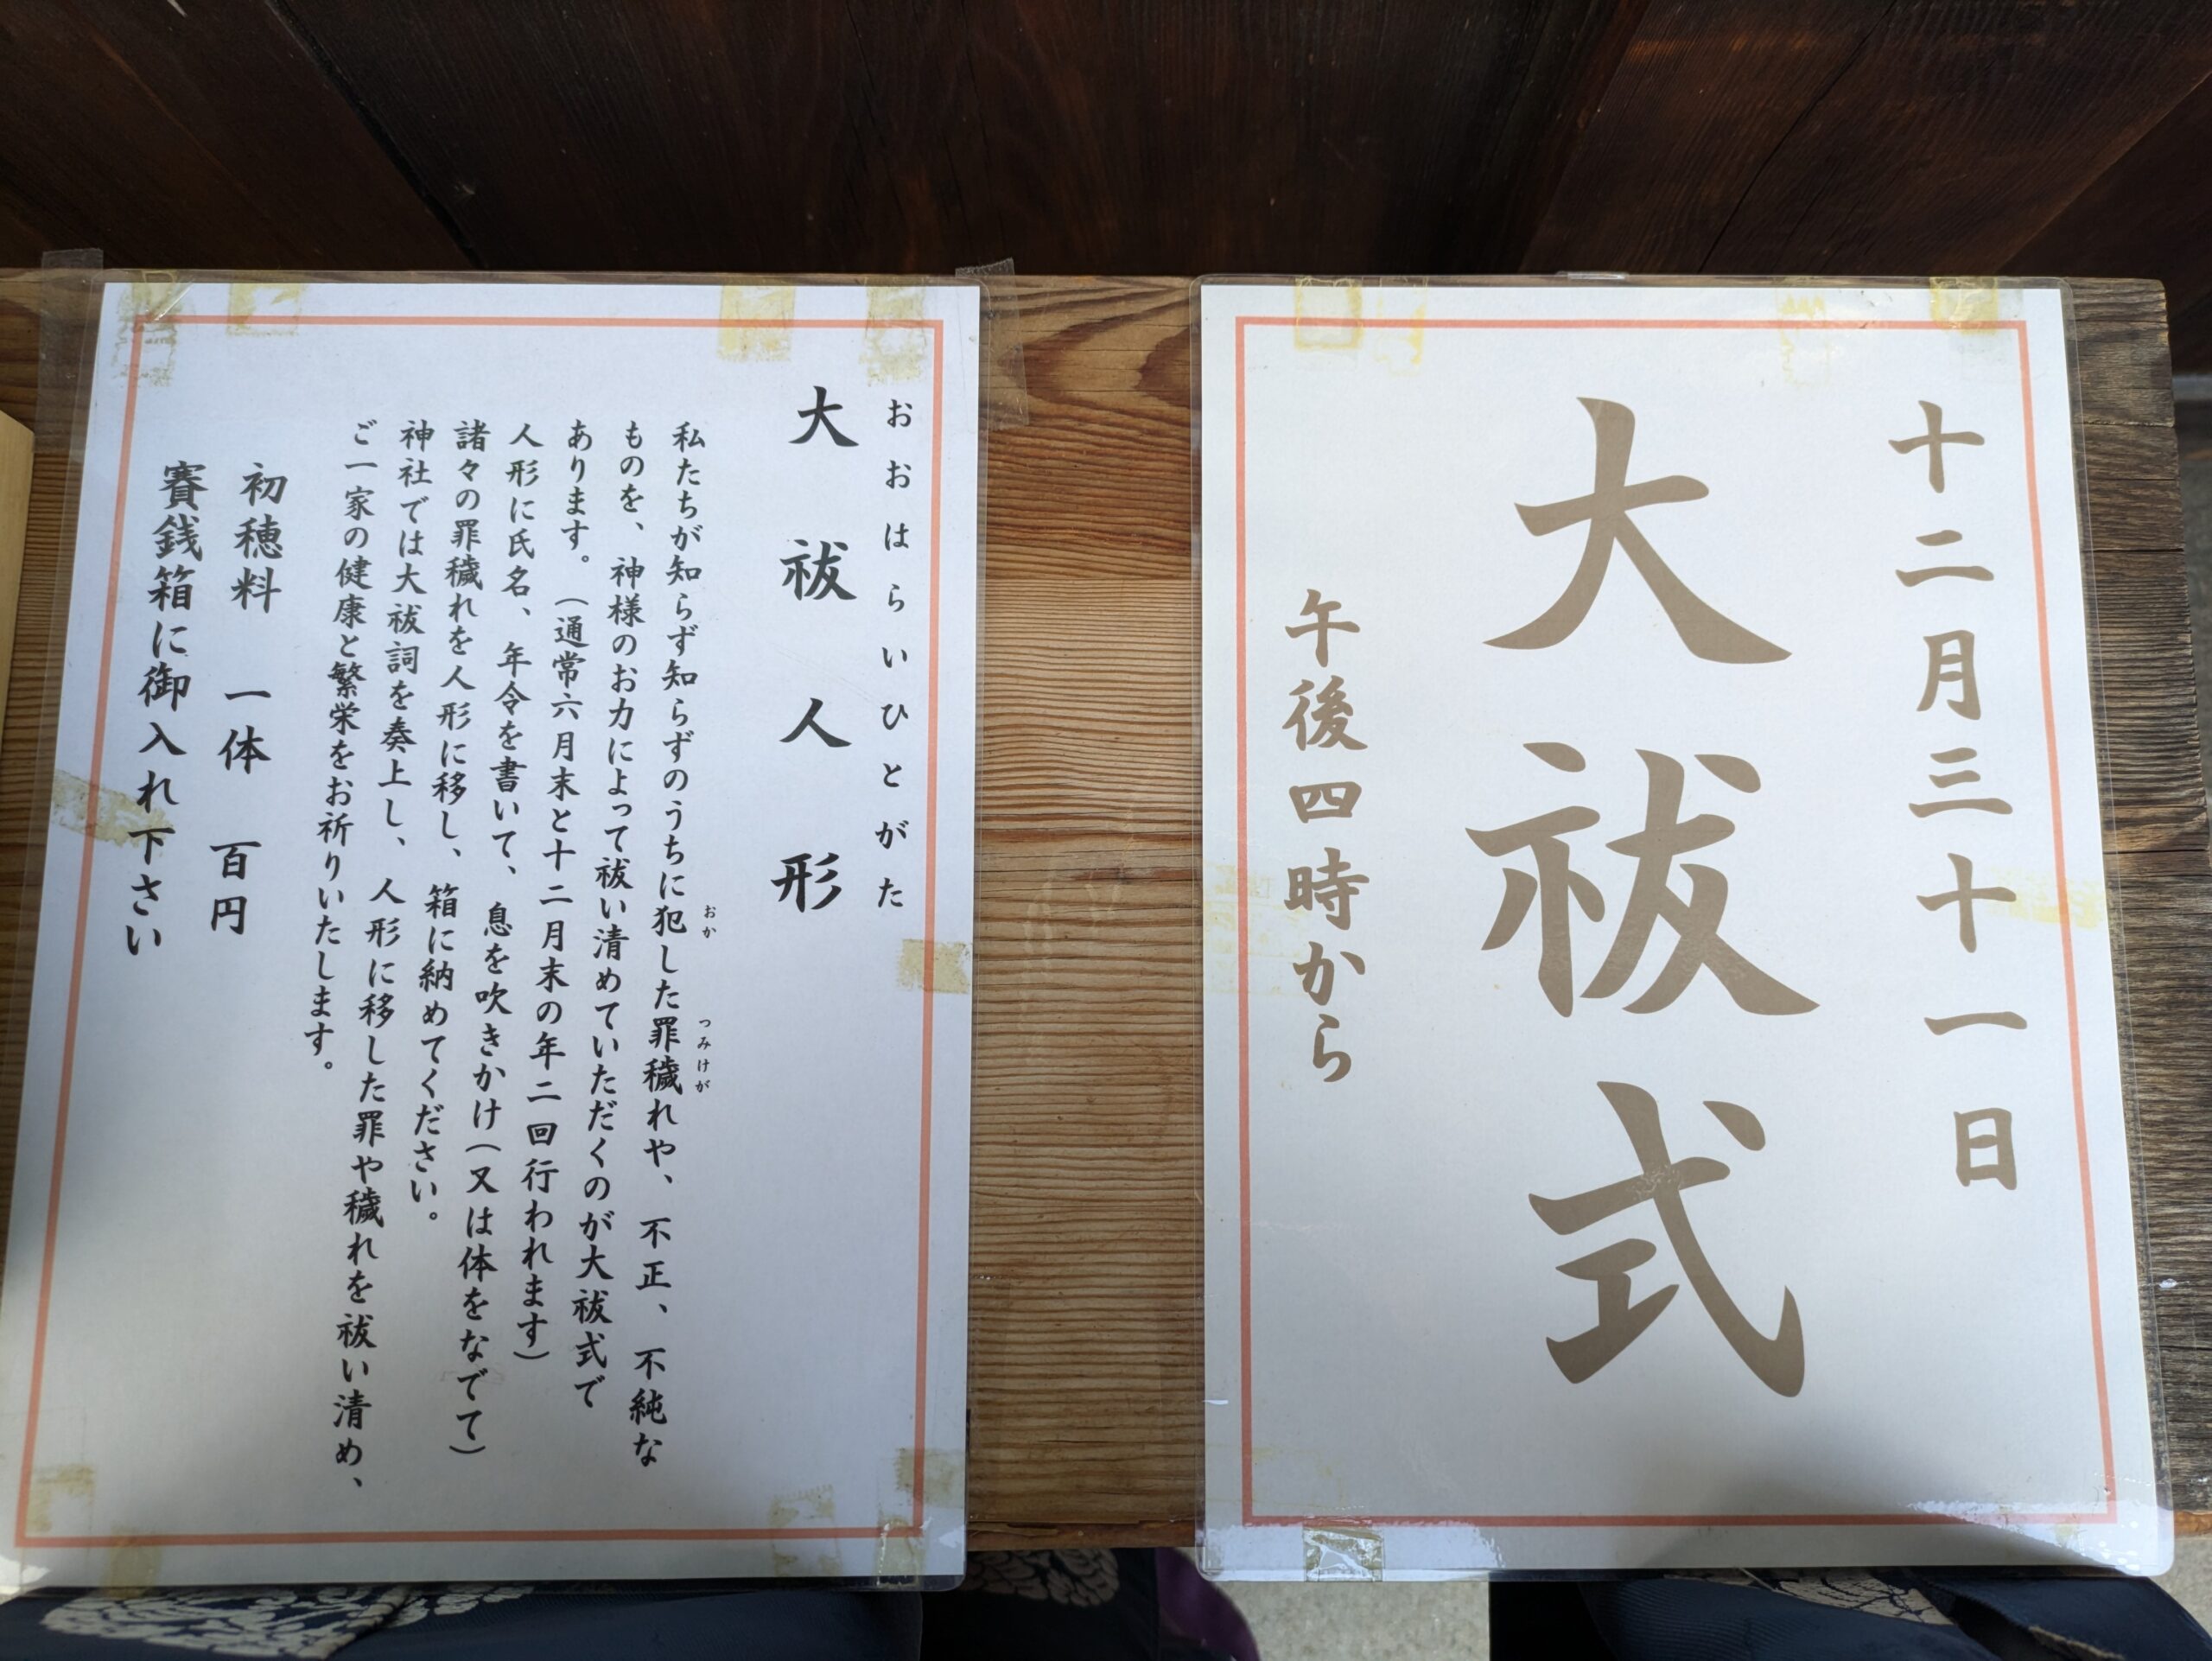 十二月三十一日
大祓式
午後四時から
おおはらいひとがた
大祓人形
私たちが知らず知らずのうちに犯した罪穢れや、不正、不純な
おか
つみけが
ものを、神様のお力によって祓い清めていただくのが大祓式で
あります。(通常六月末と十二月末の年二回行われます)
人形に氏名、年令を書いて、息を吹きかけ(又は体をなでて)
諸々の罪穢れを人形に移し、箱に納めてください。
神社では大祓詞を奏上し、人形に移した罪や穢れを祓い清め、
ご一家の健康と繁栄をお祈りいたします。
初穂料 一体 百円
賽銭箱に御入れ下さい